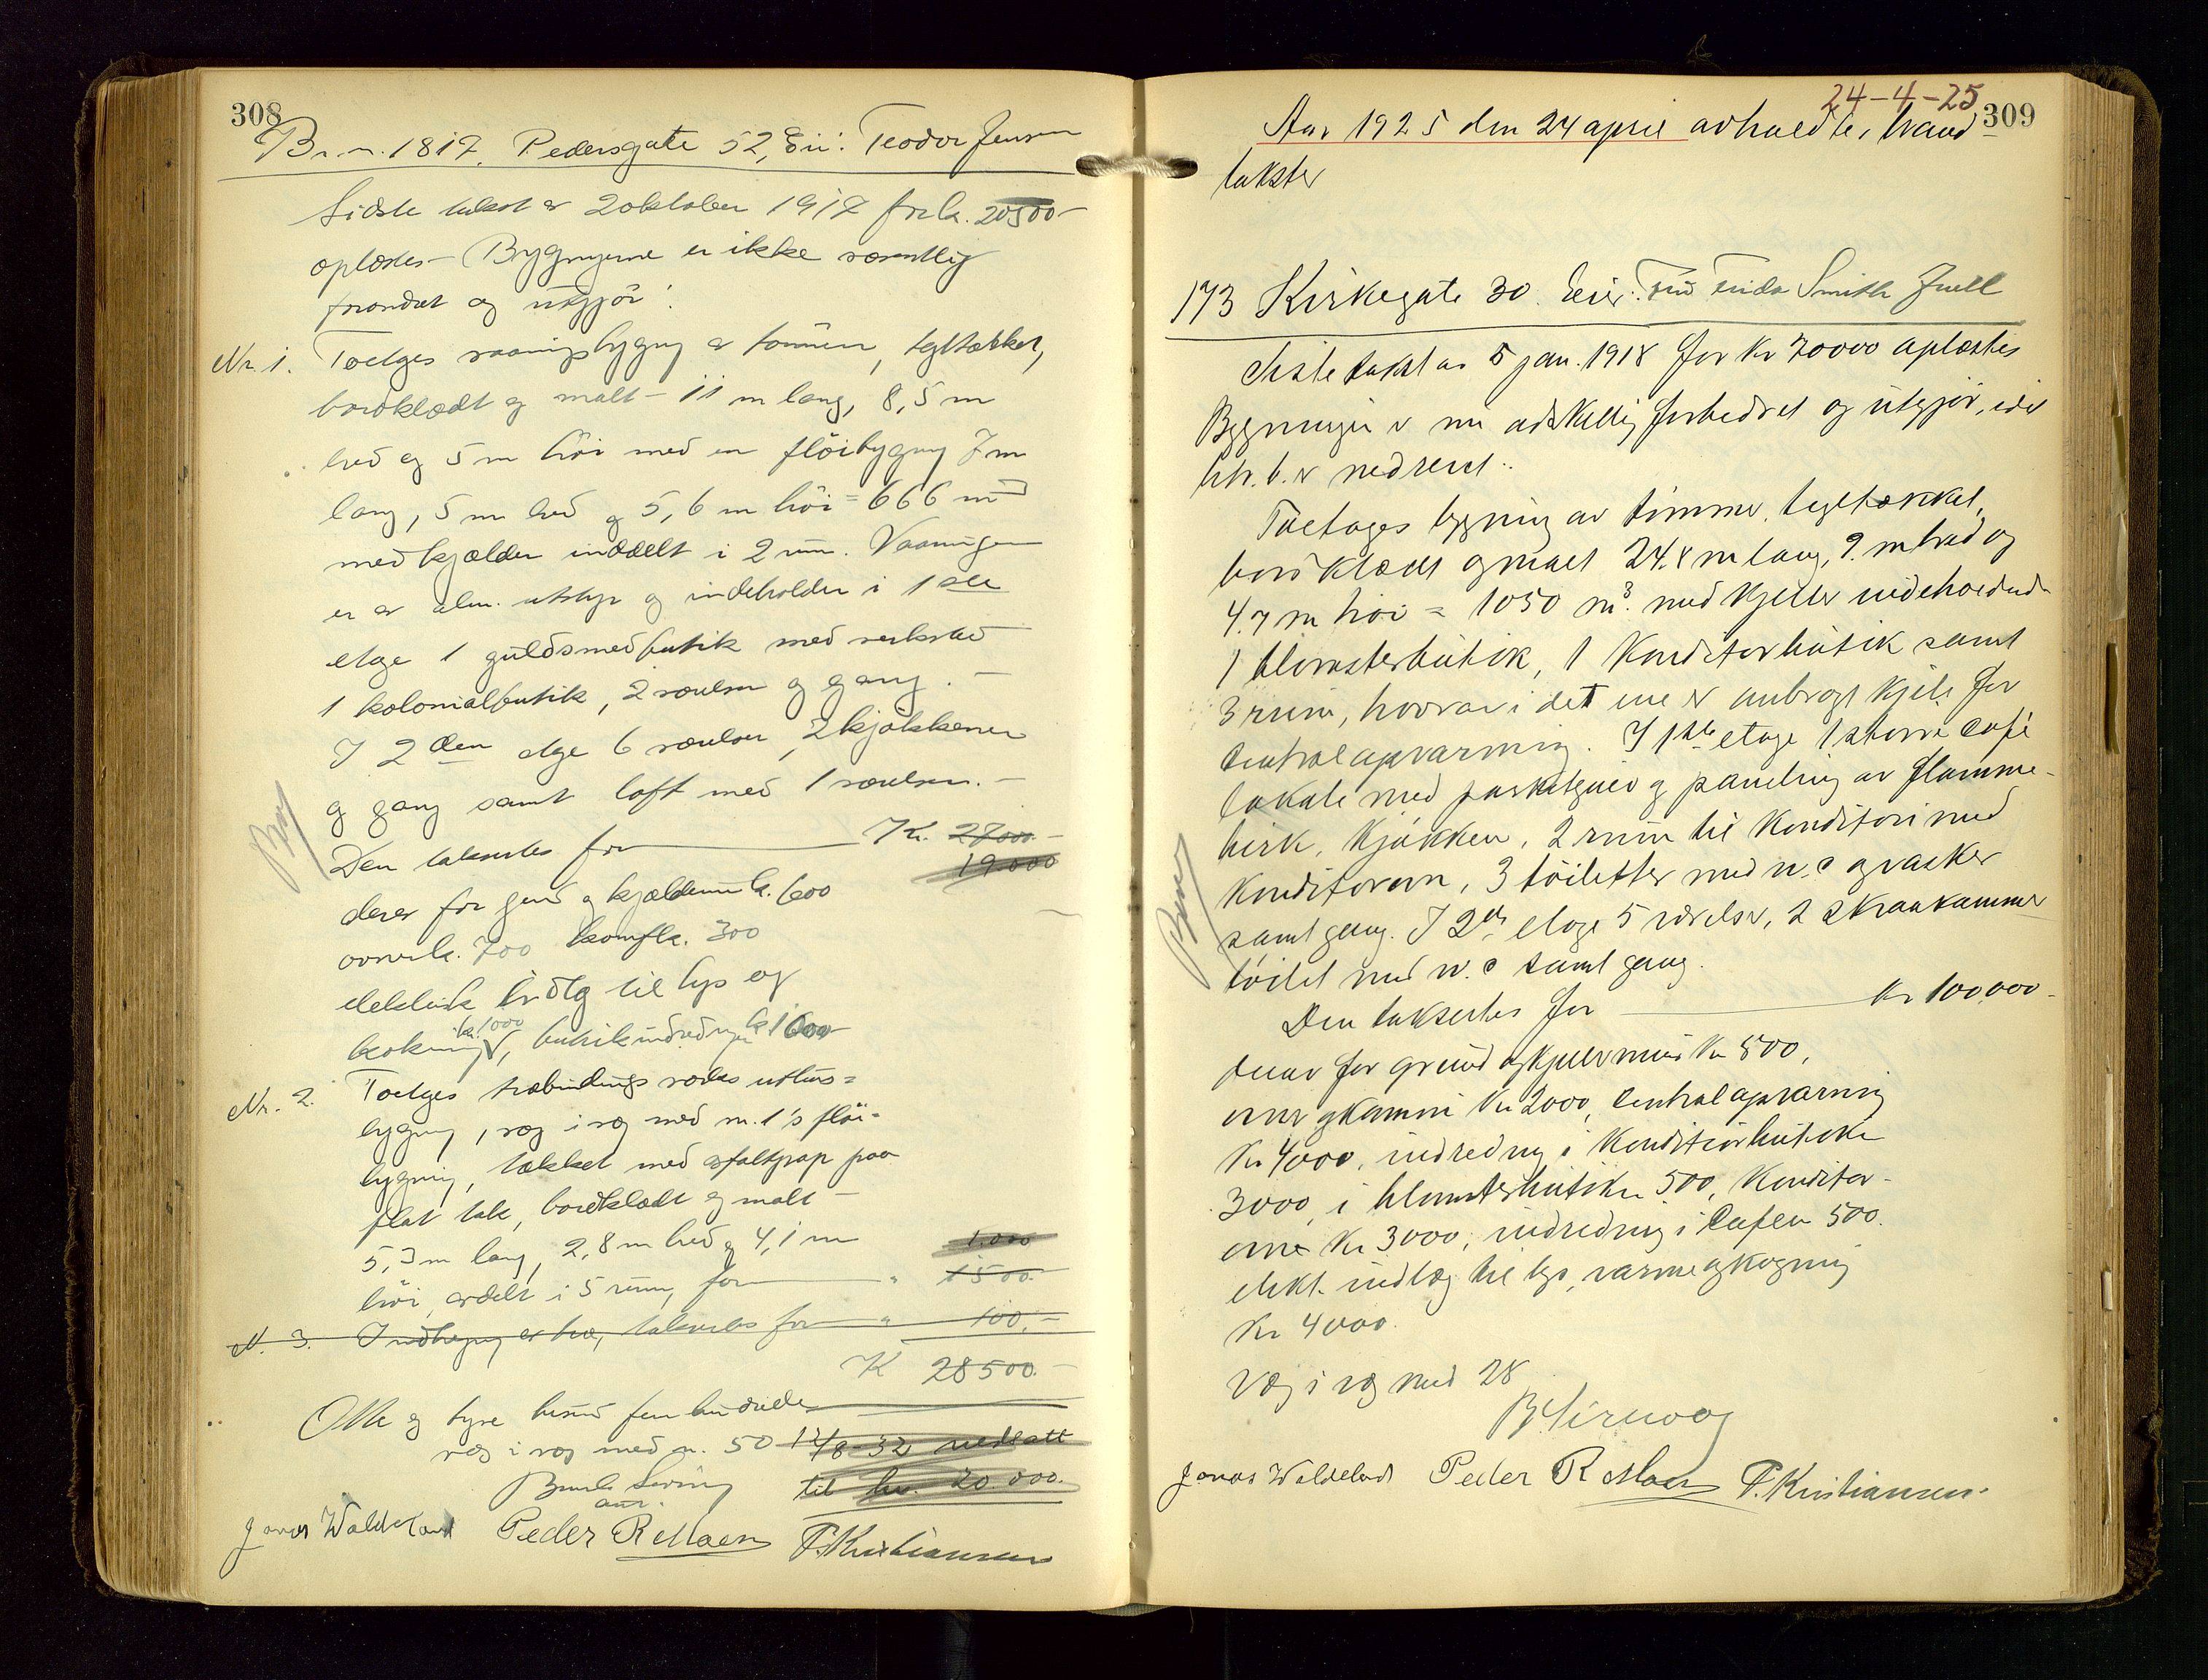 308
Br. nr. 1817. Pedersgate 52, Eier: Teodor Jensen
Sidste takst av 2 oktober 1917 for kr. 20500 –
oplæstes – Bygningerne er ikke væsentlig
forandret og utgjör:
Nr. 1. Toetages vaaningsbygning av tömmer, tegltækket,
bordklædt og malt – 11 m lang, 8,5 m
bred og 5 m höi med en flöibygning 7 m
lang, 5 m bred og 5,6 m höi = 666 m
med kjælder inddelt i 2 rum. Vaaningen
er av alm. utstyr og indeholder i 1ste
etage 1 guldsmedbutik med verksted
1 kolonialbutik, 2 værelser og gang. –
I 2den etage 6 værelser, 2 kjøkkener
og gang samt loft med 1 værelse. –
Den takseres for Kr. 27000. –
19.000
derav for grund og kjældermur kr. 600
ovner kr. 700 komf. kr. 300
elektrisk indlæg til lys og
kokning kr. 1000, butikindredning kr 1600
Nr. 2. Toetages træbindings utbygs=
bygning, væg i væg med nr. 1's flöi-
bygning, tækket med asfaltpap paa
flat tak, bordklædt og malt –
5,3 m lang, 2,8 m bred og 4,1 m
1.000
höi, avdelt i 5 rum, for " 1500.
N. 3. Indhegning av træ, takseres for " 100. –
K 28500. –
Otte og tyve tusind fem hundrede
væg i væg med nr. 50 12/8-32 nedsatt
til kr. 20.000.
Jonas Waldeland Peder R Moen T. Kristiansen
24-4-25
309
Aar 1925 den 24 april avholdtes brand-
takster
173 Kirkegate 30. Eier: Fru Smith Juell
Siste takst av 5 jan. 1918 for kr 70000 oplæstes
Bygningen er nu adskillig forbedret og utgjör, idet
litr. b. er nedrevet.
Toetages bygning av tömmer, tegltækket,
bordklædt og malt 24.8 m lang, 9. m bred og
4.7 m höi = 1050 m³. med kjeller indeholdende
1 blomsterbutik, 1 Konditorbutik samt
3 rum, hvorav i det ene er anbragt kjele for
Centralopvarming. I 1ste etage 1 større Café
lokale med parketgulv og paneling av flamme-
birk, Kjøkken, 2 rum til Konditori med
Konditorovn, 3 töiletter med w.c og vasker
samt gang. I 2den etage 5 værelser, 2 skraakammer
töilet med w.c samt gang.
Den takseres for kr 100,000 –
derav for grund og kjellermur kr 800,
ovner og kamin kr 2000, Centralopvarming
Kr 4000, indredning i Konditorbutiken
3000, i blomsterbutiken 500, Konditor-
ovne Kr 3000, indredning i Cafeen 500.
elekt. indlæg til lys, varme og kogning
Kr 4000.
Væg i væg med 28
Jonas Waldeland Peder R Moen T. Kristiansen.